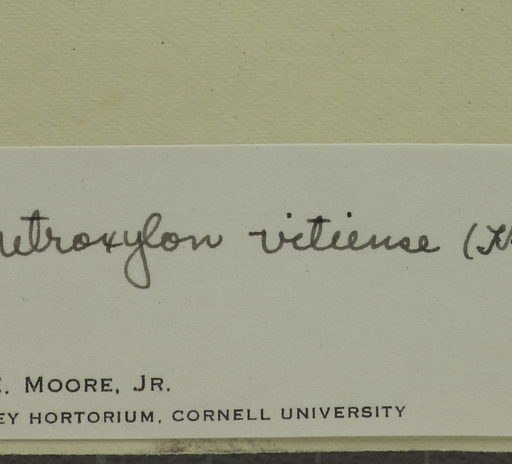 etroxylon vitiense (H
E. MOORE, JR.
EY HORTORIUM, CORNELL UNIVERSITY